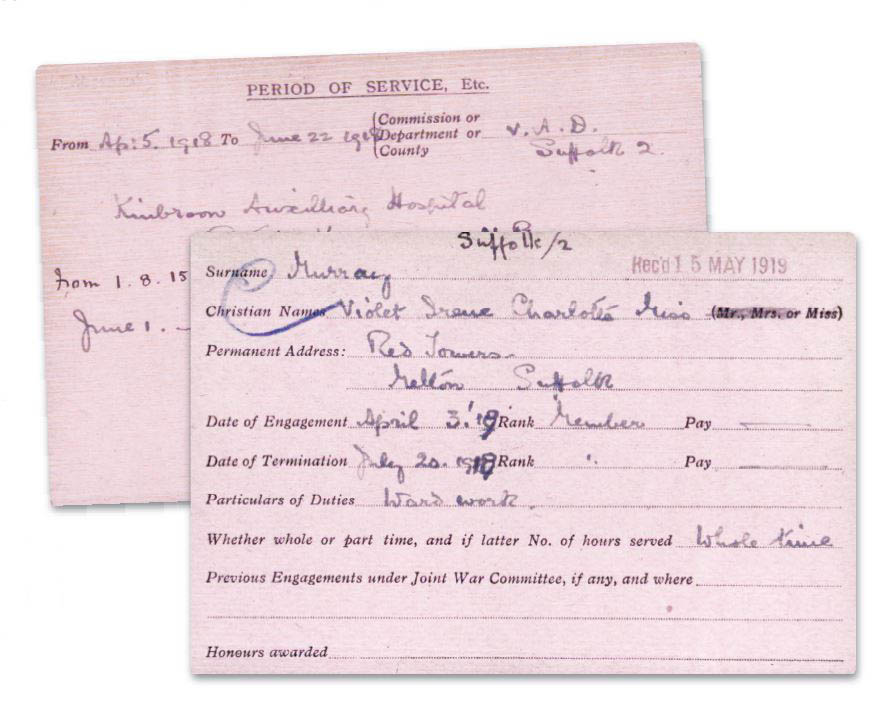 PERIOD OF SERVICE, Etc.
From Ap: 5. 1918 To June 22 1918 (Commission or Department or County V. A. D.
Suffolk 2.
Auxilliary Hospital
From 1. 8. 15
June 1. –
Suffolk/2
Rec'd 15 MAY 1919
Surname Murray
Christian Names Violet Irene Charlotte Miss (Mr., Mrs. or Miss)
Permanent Address: Red Towers
Melton Suffolk
Date of Engagement April 3. '18 Rank Member Pay —
Date of Termination July 20. 1918 Rank " Pay —
Particulars of Duties Ward work.
Whether whole or part time, and if latter No. of hours served Whole time
Previous Engagements under Joint War Committee, if any, and where
Honours awarded